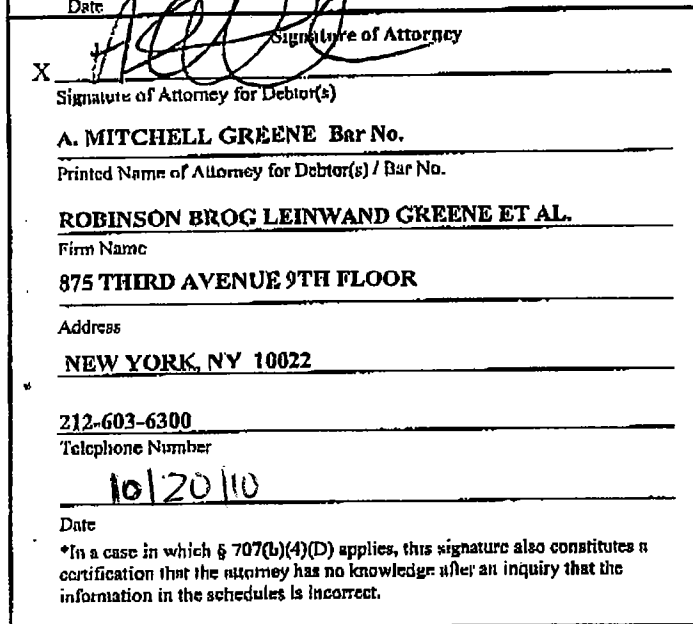 Date
Signature of Attorney
X
Signature of Attorney for Debtor(s)
A. MITCHELL GREENE Bar No.
Printed Name of Attorney for Debtor(s) / Bar No.
ROBINSON BROG LEINWAND GREENE ET AL.
Firm Name
875 THIRD AVENUE 9TH FLOOR
Address
NEW YORK, NY 10022
212-603-6300
Telephone Number
10/20/10
Date
*In a case in which § 707(b)(4)(D) applies, this signature also constitutes a
certification that the attorney has no knowledge after an inquiry that the
information in the schedules is incorrect.